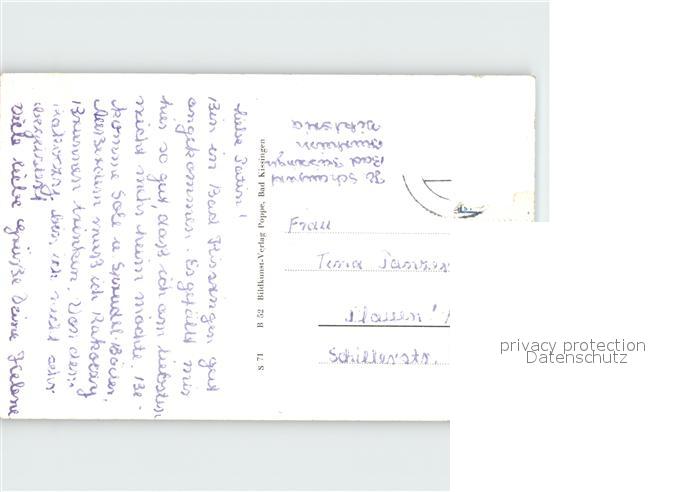 Liebe Patin!
Bin in Bad Kissingen gut
angekommen. Es gefällt mir
hier so gut, daß ich am liebsten
nicht mehr heim möchte. Be-
komme Sole u. Sprudel-Bäder.
Außerdem muß ich Rakoczy
Brunnen trinken. Von dem
bin ich nicht sehr
begeistert.
Viele liebe Grüße Deine Helene
S 71 B 52 Bildkunst-Verlag Poppe, Bad Kissingen
Bad Kissingen
Kurheim
Frau
Plauen
Schillerstr.
privacy protection
Datenschutz